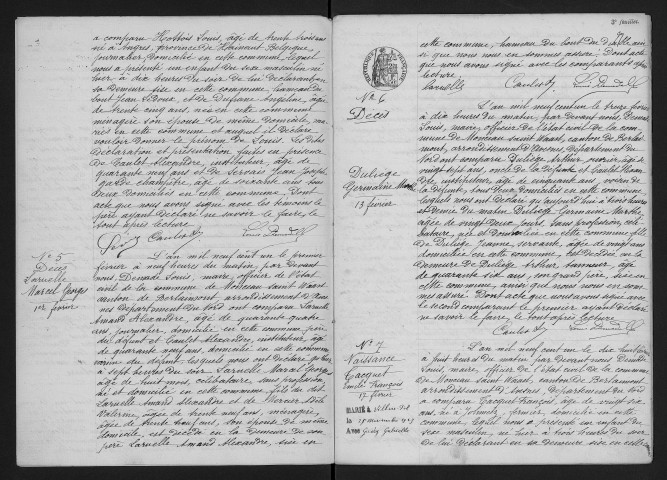 a comparu Hottois Louis, âgé de trente trois ans
né à Angres, province de Hainaut Belgique,
journalier, domicilié en cette commune, lequel
nous a présenté un enfant du sexe masculin né
hier à dix heures du soir de lui déclarant en
sa demeure sise en cette commune, hameau du
bout Jean et de Defiane Angeline, âgée
de trente cinq ans, née en cette commune,
ménagère son épouse de même domicile, ma
riés en cette commune et auquel il déclare
vouloir donner le prénom de Louis. Les dites
déclaration et présentation faites en présence
de Caulet Alexandre, instituteur, âgé de
quarante neuf ans et de Servais Jean Joseph
garde champêtre, âgé de soixante ans tous
deux domiciliés en cette commune. Dont
acte que nous avons signé avec les témoins le
père ayant déclaré ne savoir le faire, le
tout après lecture.
N° 5
Décès
Laruelle
Marcel Georges
1er février
L'an mil neuf cent un le premier
février à neuf heures du matin par devant
nous, Louis, maire, officier de l'état
civil de la commune de Monceau Saint Waast
canton de Berlaimont, arrondissement d'Aves
nes Département du Nord ont comparu Laruelle
Amand Alexandre, âgé de quarante quatre
ans, journalier, domicilié en cette commune père
du défunt et Caulet Alexandre, instituteur, âgé
de quarante neuf ans, domicilié en cette commune
voisin du défunt, lesquels nous ont déclaré qu'hier
à sept heures du soir Laruelle Marcel Georges
âgé de huit mois, célibataire, sans profession
né et domicilié en cette commune fils de dit
Laruelle Amand Alexandre et de Mercier
Valérine, âgée de trente neuf ans, ménagère,
son épouse de même
domicile, est décédé en la demeure de son
père Laruelle Amand Alexandre, sise en
3e feuillet
cette commune, hameau du bout du
si que nous nous en sommes assuré. Dont acte
que nous avons signé avec les comparants après
lecture.
Laruelle Caulet
N° 6
Décès
Duliège
Germaine Marthe
13 février
L'an mil neuf cent un le treize février
à dix heures du matin par devant nous,
Louis, maire, officier de l'état civil de la com
mune de Monceau Saint Waast, canton de Berlai
mont, arrondissement d'Avesnes, Département du
Nord ont comparu Duliège Arthur, âgé de
vingt sept ans, oncle de la défunte et Caulet Alexan
dre, instituteur, âgé de quarante neuf ans, voisin de
la défunte, tous deux domiciliés en cette commune
lesquels nous ont déclaré qu'aujourd'hui à trois heures
et demie du matin Duliège Germaine Marthe
âgée de vingt deux jours, sans profession, céli
bataire, née et domiciliée en cette commune fille
de Duliège Jeanne, servante, âgée de vingt ans
domiciliée en cette commune, est décédée en la
demeure de Duliège Arthur
âgé de quarante sept ans, son grand père, sise en
cette commune, ainsi que nous nous en som
mes assuré. Dont acte que nous avons signé avec
le second comparant le premier ayant déclaré
ne savoir le faire, le tout après lecture.
Caulet
N° 7
Naissance
Cacquet
Emile François
17 février
MARIÉ à
le 29 novembre 1925
Avec
L'an mil neuf cent un le dix huit février
à huit heures du matin par devant nous
Louis, maire, officier de l'état civil de la commune
de Monceau Saint Waast, canton de Berlaimont
arrondissement d'Avesnes, Département du Nord
a comparu Cacquet François, âgé de vingt
ans, né à
commune, lequel nous a présenté un enfant du
sexe masculin, né hier à trois heures du soir
de lui déclarant en sa demeure sise en cette